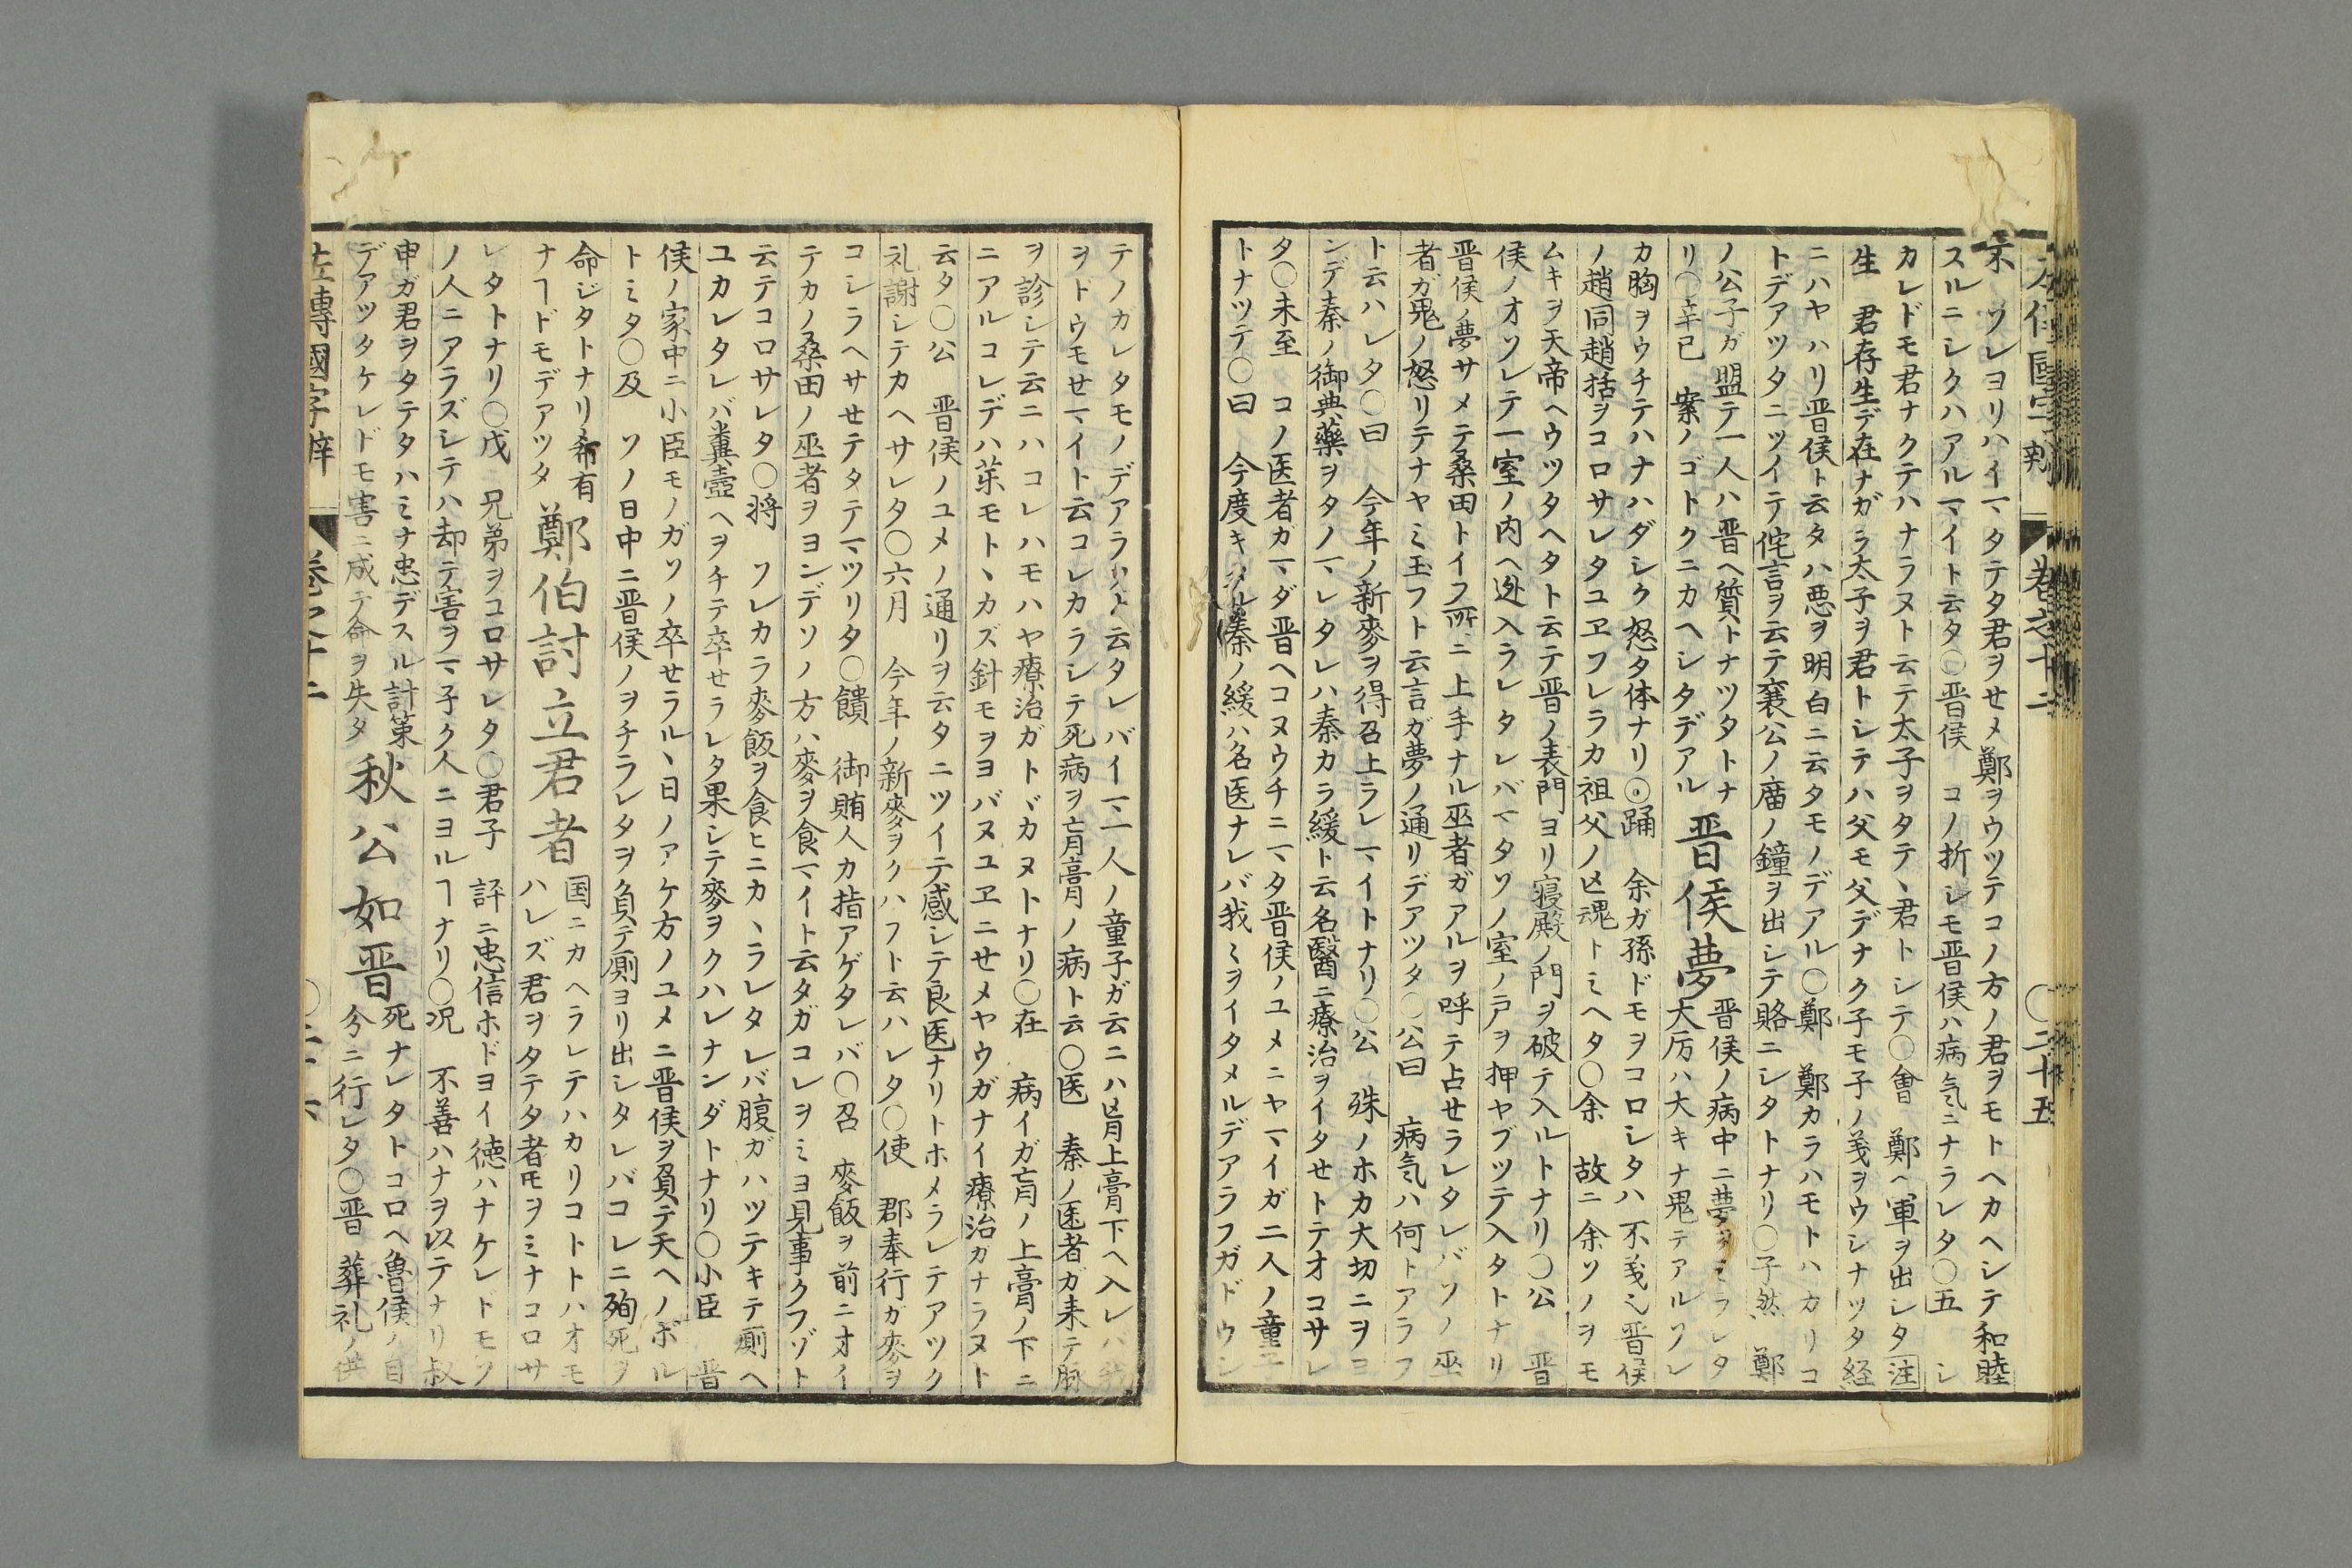 左傳國字辨 卷之十二 ○二十五
ソレヨリハイマヽタテタ君ヲセメ鄭ヲウツテコノ方ノ君ヲモトヘカヘシテ和睦
スルニシクハアルマイト云タ○晋侯 コノ折シモ晋侯ハ病気ニナラレタ○五 シ
カレドモ君ナクテハナラヌト云テ太子ヲタテヽ君トシテ○會 鄭ヘ軍ヲ出シタ 注
生 君存生デ在ナガラ太子ヲ君トシテハ父モ父デナク子モ子ノ義ヲウシナツタ経
ニハヤハリ晋侯ト云タハ悪ヲ明白ニ云タモノデアル○鄭 鄭カラハモトハカリコ
トデアツタニツイテ侘言ヲ云テ襄公ノ庿ノ鐘ヲ出シテ賂ニシタトナリ○子然 鄭
ノ公子ガ盟テ一人ハ晋ヘ質トナツタトナ
リ○辛巳 案ノゴトクニカヘシタデアル
晋侯夢
晋侯ノ病中ニ夢ヲミラレタ
大厉ハ大キナ鬼テアルソレ
カ胸ヲウチテハナハダシク怒タ体ナリ○踊 余ガ孫ドモヲコロシタハ不義也晋侯
ノ趙同趙括ヲコロサレタユヱソレラカ祖父ノ亡魂トミヘタ○余 故ニ余ソノヲモ
ムキヲ天帝ヘウツタヘタト云テ晋ノ表門ヨリ寝殿ノ門ヲ破テ入ルトナリ○公 晋
侯ノオソレテ一室ノ内ヘ迯入ラレタレバマタソノ室ノ戸ヲ押ヤブツテ入タトナリ
晋侯ノ夢サメテ桑田トイフ所ニ上手ナル巫者ガアルヲ呼テ占セラレタレバソノ巫
者ガ鬼ノ怒リテナヤミ玉フト云言ガ夢ノ通リデアツタ○公曰 病気ハ何トアラフ
ト云ハレタ○曰 今年ノ新麥ヲ得召上ラレマイトナリ○公 殊ノホカ大切ニヲヨ
ンデ秦ノ御典藥ヲタノマレタレハ秦カラ緩ト云名醫ニ療治ヲイタせトテオコサレ
タ○未至 コノ医者ガマダ晋ヘコヌウチニマタ晋侯ノユメニヤマイガ二人ノ童子
トナツテ○曰 今度キタル秦ノ緩ハ名医ナレバ我ミヲイタメルデアラフガドウシ
テノガレタモノデアラハト云タレバイマ一人ノ童子ガ云ニハ肓上膏下ヘ入レバ我
ヲドウモせマイト云コレカラシテ死病ヲ肓膏ノ病ト云○医 秦ノ医者ガ来テ脉
ヲ診シテ云ニハコレハモハヤ療治ガトヾカヌトナリ○在 病イガ肓ノ上膏ノ下ニ
ニアルコレデハ茱モトヽカズ針モヲヨバヌユヱニせメヤウガナイ療治ガナラヌト
云タ○公 晋侯ノユメノ通リヲ云タニツイテ感シテ良医ナリトホメラレテアツク
礼謝シテカヘサレタ○六月 今年ノ新麥ヲクハフト云ハレタ○使 郡奉行ガ麥ヲ
コシラヘサせテタテマツリタ○饋 御賄人カ指アゲタレバ○召 麥飯ヲ前ニオイ
テカノ桑田ノ巫者ヲヨンデソノ方ハ麥ヲ食マイト云タガコレヲミヨ見事クフゾト
云テコロサレタ○将 ソレカラ麥飯ヲ食ヒニカヽラレタレバ腹ガハツテキテ厠ヘ
ユカレタレバ糞壺ヘヲチテ卒せラレタ果シテ麥ヲクハレナンダトナリ○小臣 晋
侯ノ家中ニ小臣モノガソノ卒せラルヽ日ノアケ方ノユメニ晋侯ヲ負テ天ヘノボル
トミタ○及 ソノ日中ニ晋侯ノヲチラレタヲ負テ厠ヨリ出シタレバコレニ殉死ヲ
命ジタトナリ希有
ナヿドモデアツタ
鄭伯討立君者
国ニカヘラレテハカリコトトハオモ
ハレズ君ヲタテタ者𪜈ヲミナコロサ
レタトナリ○戊 兄弟ヲコロサレタ○君子 評ニ忠信ホドヨイ徳ハナケレドモソ
ノ人ニアラズシテハ却テ害ヲマ子ク人ニヨルヿナリ○况 不善ハナヲ以テナリ叔
申ガ君ヲタテタハミナ忠デスル計策
デアツタケレドモ害ニ成テ命ヲ失タ
秋公如晋
死ナレタトコロヘ魯侯ノ自
分ニ行レタ○晋 葬礼ノ供
左傳國字辨 卷之十二 ○二十六